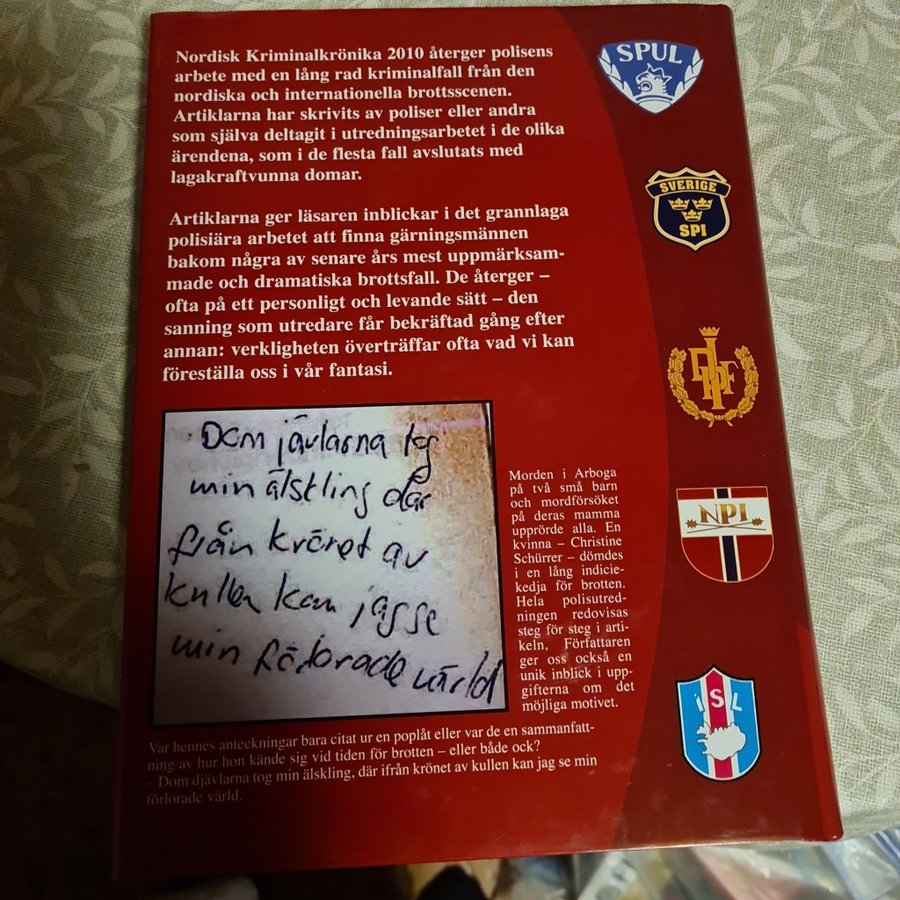 Nordisk Kriminalkrönika 2010 återger polisens
arbete med en lång rad kriminalfall från den
nordiska och internationella brottsscenen.
Artiklarna har skrivits av poliser eller andra
som själva deltagit i utredningsarbetet i de olika
ärendena, som i de flesta fall avslutats med
lagakraftvunna domar.
Artiklarna ger läsaren inblickar i det grannlaga
polisiära arbetet att finna gärningsmännen
bakom några av senare års mest uppmärksam-
made och dramatiska brottsfall. De återger –
ofta på ett personligt och levande sätt – den
sanning som utredare får bekräftad gång efter
annan: verkligheten överträffar ofta vad vi kan
föreställa oss i vår fantasi.
Dom jävlarna tog
min älskling där
från kröret av
kullen kan jag se
min förlorade värld
Morden i Arboga
på två små barn
och mordförsöket
på deras mamma
upprörde alla. En
kvinna – Christine
Schürrer – dömdes
i en lång indicie-
kedja för brotten.
Hela polisutred-
ningen redovisas
steg för steg i arti-
keln, Författaren
ger oss också en
unik inblick i upp-
gifterna om det
möjliga motivet.
Var hennes anteckningar bara citat ur en poplåt eller var de en sammanfatt-
ning av hur hon kände sig vid tiden för brotten – eller både ock?
– Dom djävlarna tog min älskling, där ifrån krönet av kullen kan jag se min
förlorade värld.
SPUL
SVERIGE
SPI
DIPF
NPI
ISL